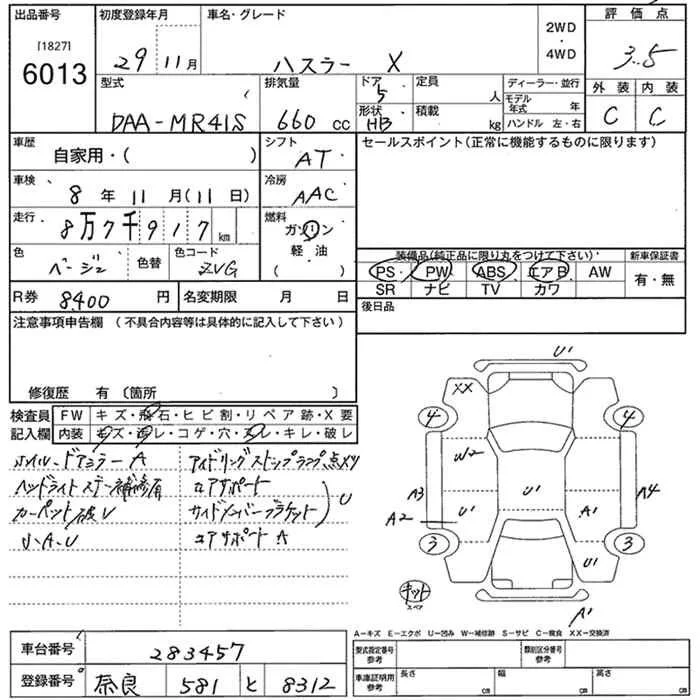 出品番号 初度登録年月 車名・グレード 2WD・4WD 評価点
[1827] 6013 29年11月 ハスラー X 3.5
型式 排気量 ドア 5 定員 人 ディーラー・並行 外装 内装
DAA-MR41S 660cc 形状 HB 積載 kg モデル年式 年 ハンドル 左・右 C C
車歴 自家用・( ) シフト AT セールスポイント(正常に機能するものに限ります)
車検 8年11月(11日) 冷房 AAC
走行 8万7千917km 燃料 ガソリン 軽・油 ( )
色 ベージュ 色替 色コード ZVG
装備品(純正品に限り丸をつけて下さい) 新車保証書
PS・ PW ABS エアB AW 有・無
SR ナビ TV カワ
R券 8,400円 名変期限 月 日 後日品
注意事項申告欄 (不具合内容等は具体的に記入して下さい)
修復歴 有〔箇所 〕
検査員 FW キズ・飛石・ヒビ割・リペア跡・X要
記入欄 内装 キズ・汚レ・コゲ・穴・スレ・キレ・破レ
ホイル・ドアミラー A アイドリングストップランプ点メツ
ヘッドライトステー補修有 コアサポート
カーペット破レ サイドメンバーブラケット U
小A.U コアサポート A
U'
XX
4 4
W2
A3 U' U' A1 A4
A2
3 3
U'
キット
スペア
A'
A-キズ E-エクボ U-凹み W-補修跡 S-サビ C-腐食 XX-交換済
車台番号 283457 型式指定番号 参考 類別区分番号 参考
登録番号 奈良 581 と 8312 車庫証明用 参考 長さ cm 幅 cm 高さ cm